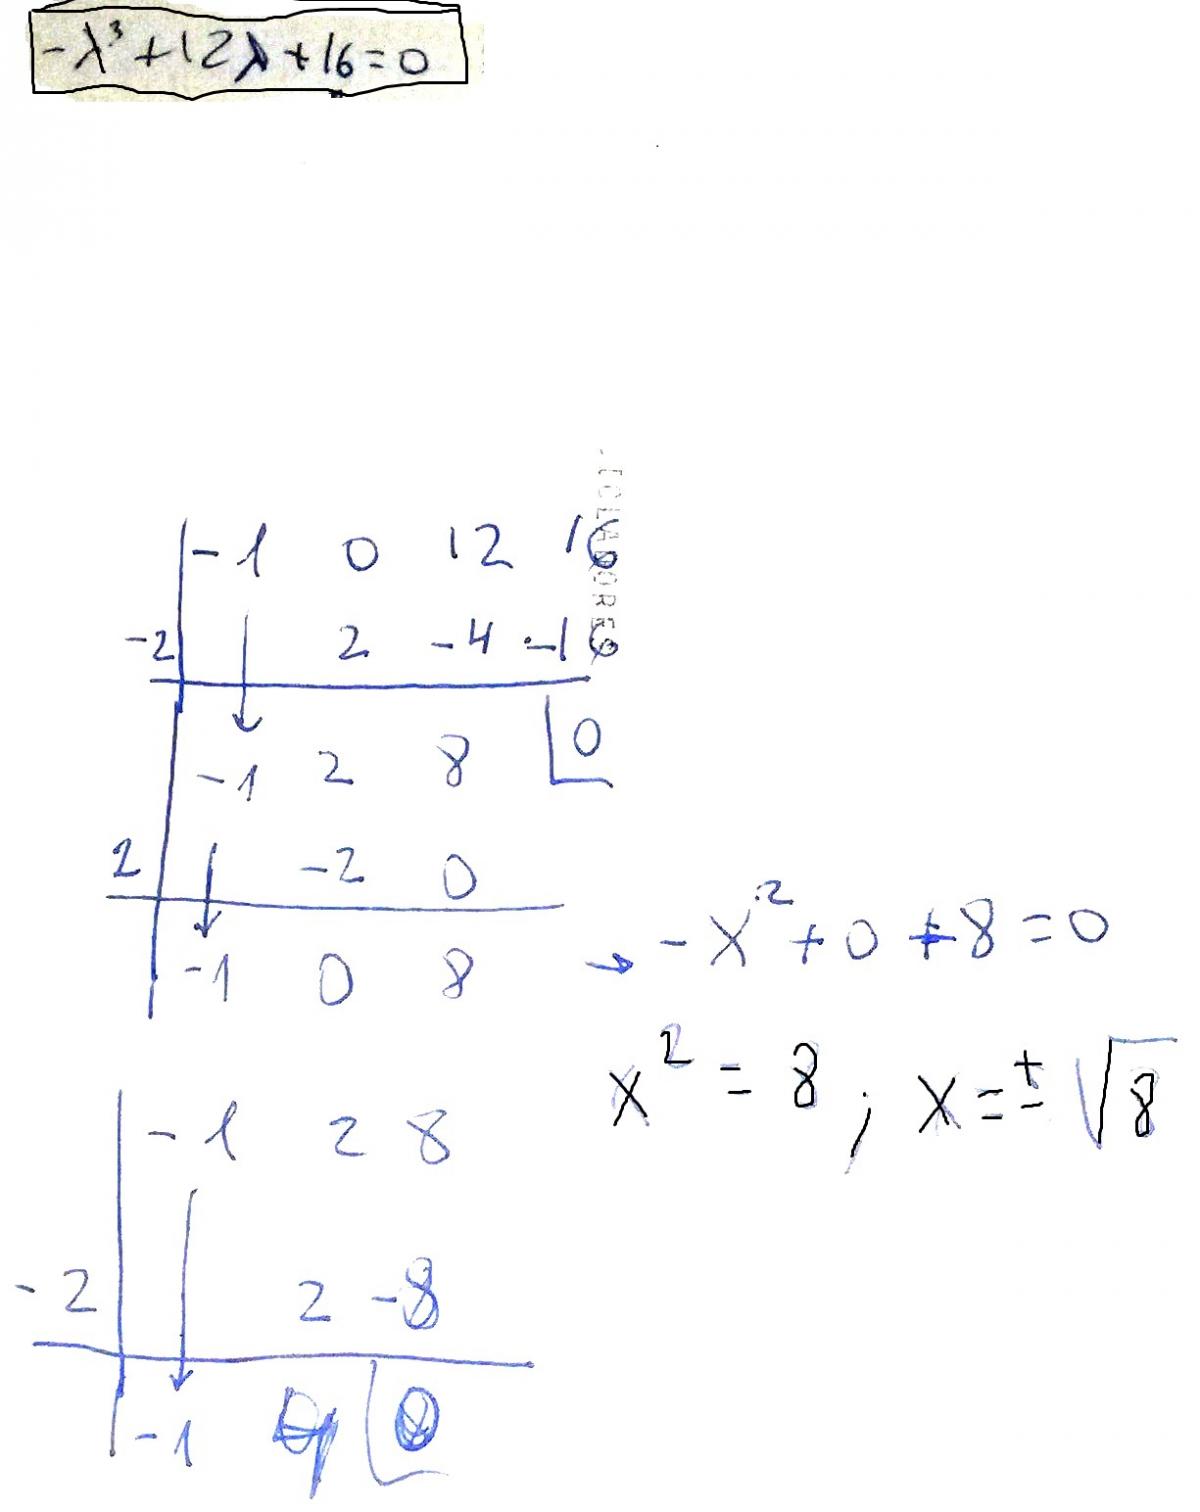 -λ³+12λ+16=0
-1 0 12 16
-2 2 -4 -16
-1 2 8 0
2 -2 0
-1 0 8 → -x²+0+8=0
x²=8; x=±√8
-1 2 8
-2 2 -8
-1 4 0